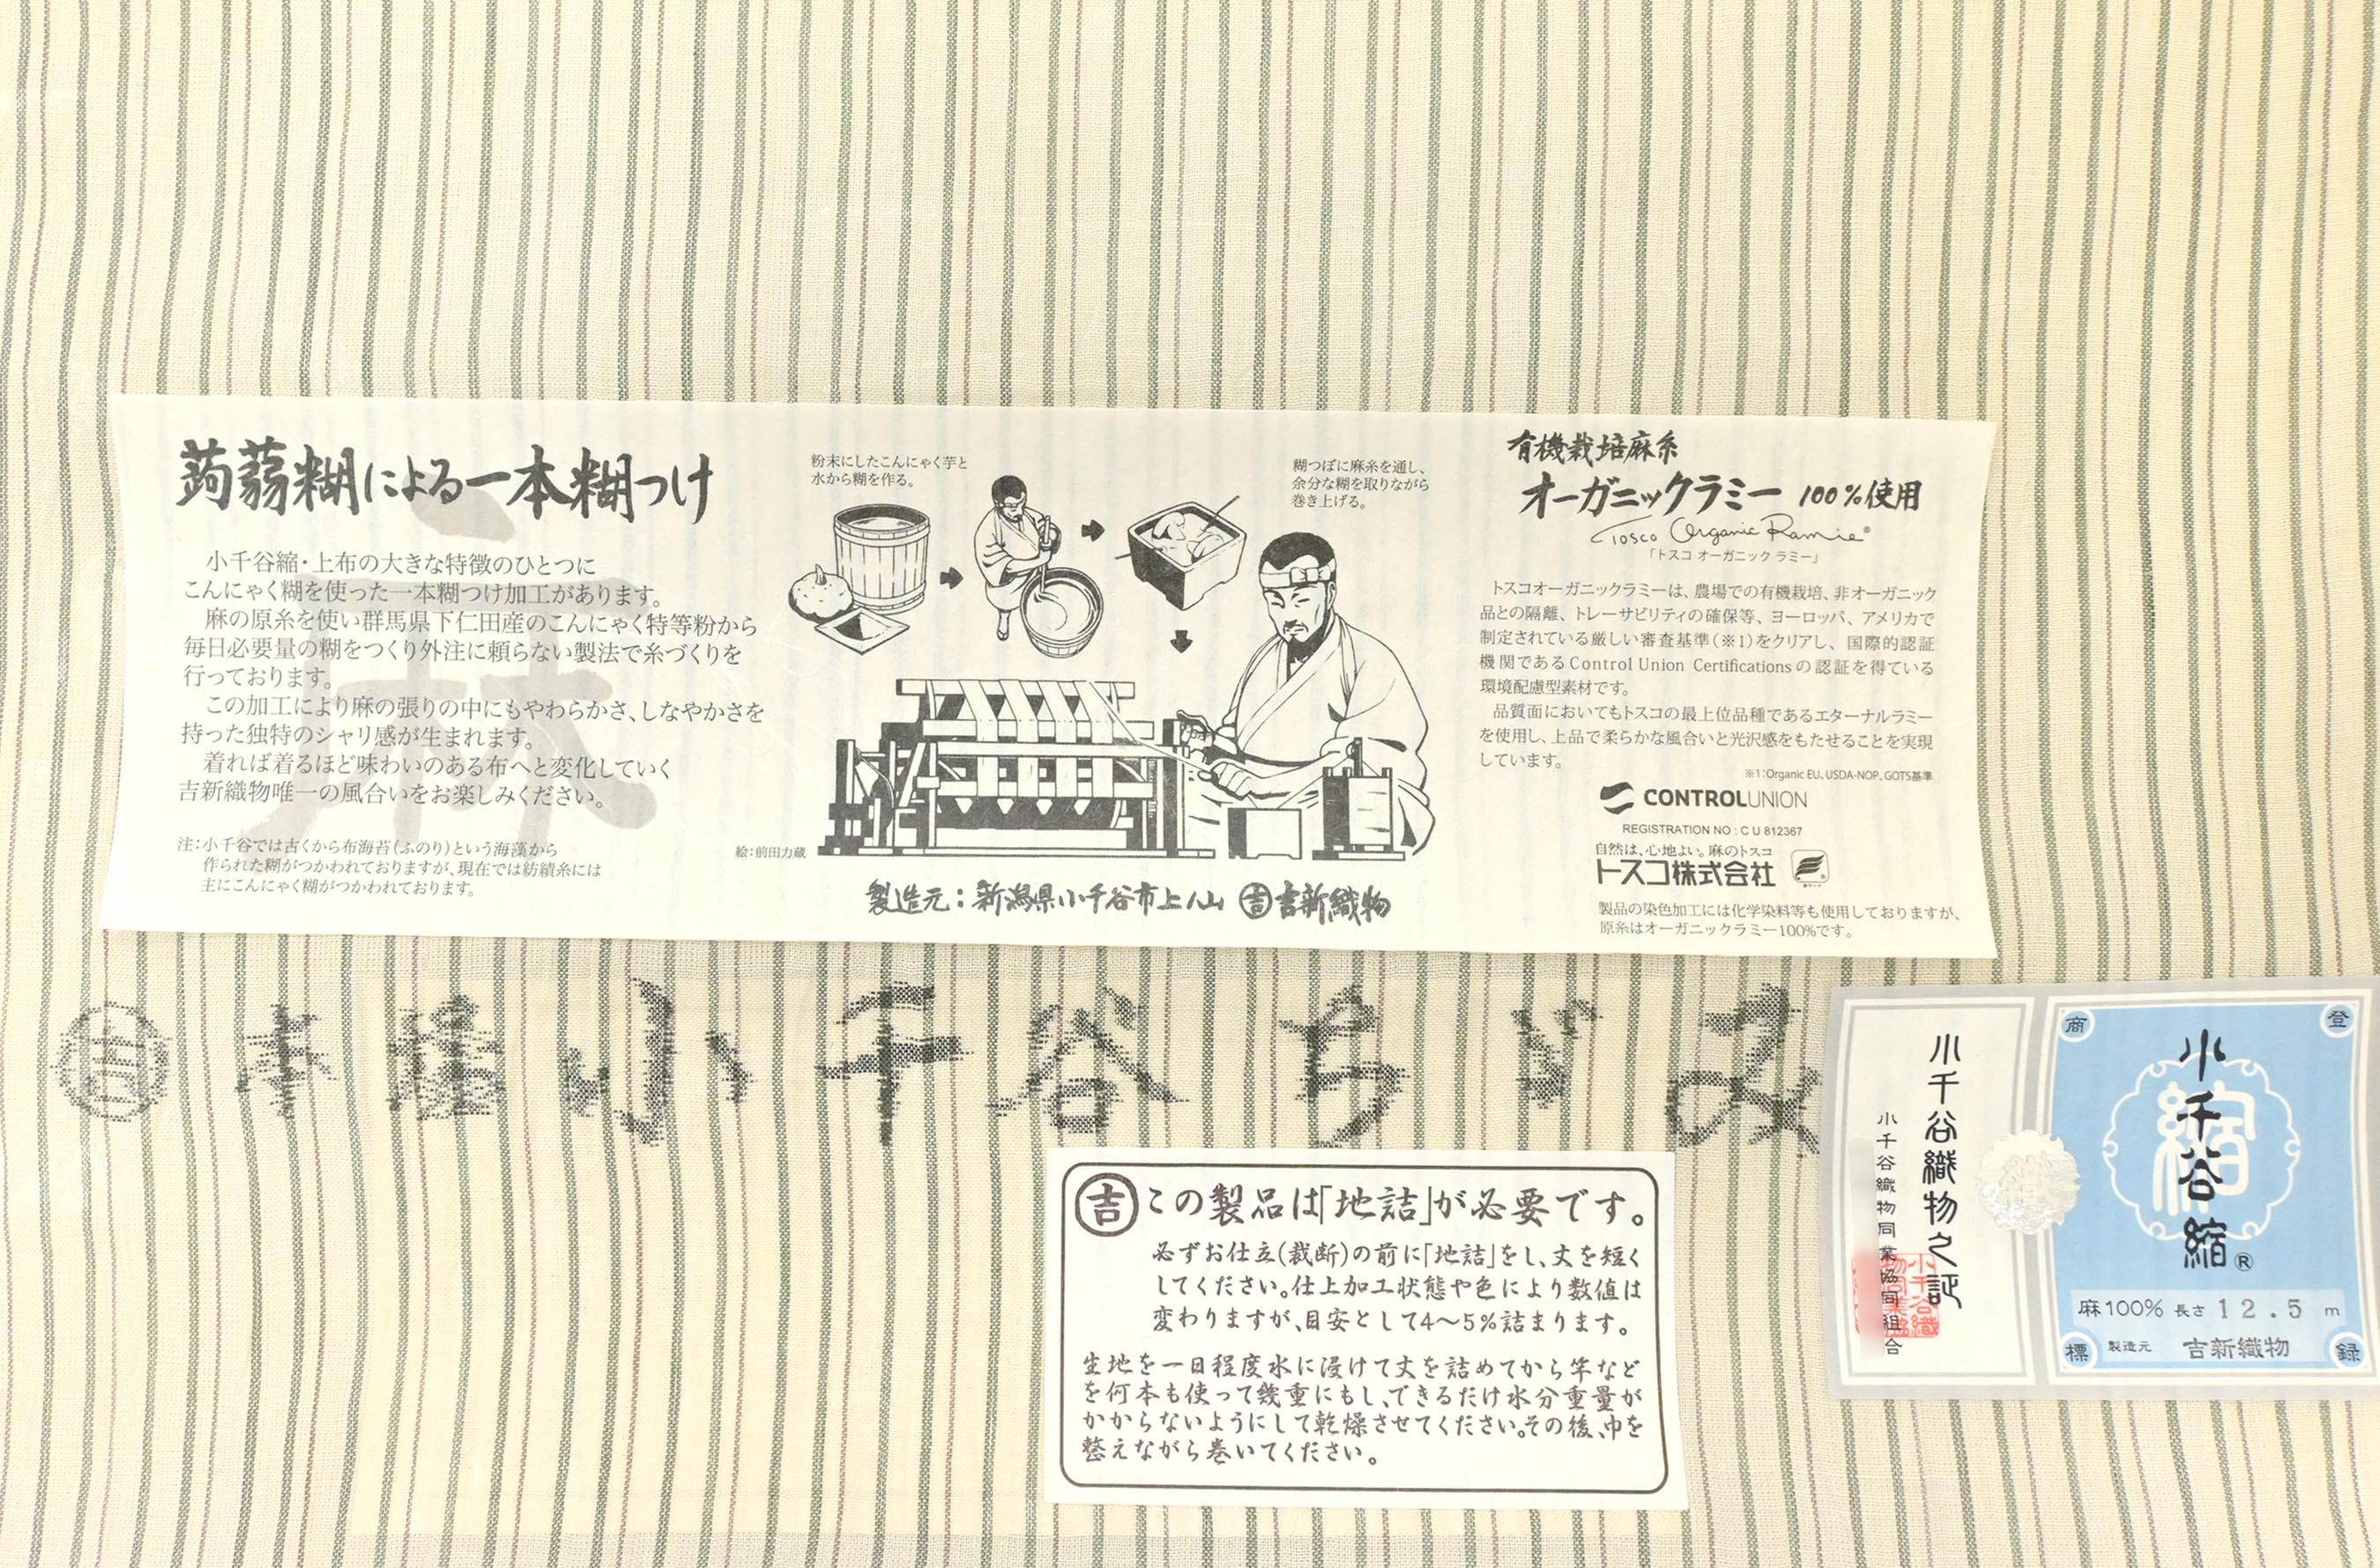 蒟蒻糊による一本糊つけ
小千谷縮・上布の大きな特徴のひとつに
こんにゃく糊を使った一本糊つけ加工があります。
麻の原糸を使い群馬県下仁田産のこんにゃく特等粉から
毎日必要量の糊をつくり外注に頼らない製法で糸づくりを
行っております。
この加工により麻の張りの中にもやわらかさ、しなやかさを
持った独特のシャリ感が生まれます。
着れば着るほど味わいのある布へと変化していく
吉新織物唯一の風合いをお楽しみください。
注:小千谷では古くから布海苔(ふのり)という海藻から
作られた糊がつかわれておりますが、現在では紡績糸には
主にこんにゃく糊がつかわれております。
麻
粉末にしたこんにゃく芋と
水から糊を作る。
糊つぼに麻糸を通し、
余分な糊を取りながら
巻き上げる。
絵:前田力蔵
製造元:新潟県小千谷市上ノ山 吉 吉新織物
有機栽培麻糸
オーガニックラミー 100%使用
Tosco Organic Ramie®
「トスコ オーガニック ラミー」
トスコオーガニックラミーは、農場での有機栽培、非オーガニック
品との隔離、トレーサビリティの確保等、ヨーロッパ、アメリカで
制定されている厳しい審査基準(※1)をクリアし、国際的認証
機関であるControl Union Certificationsの認証を得ている
環境配慮型素材です。
品質面においてもトスコの最上位品種であるエターナルラミー
を使用し、上品で柔らかな風合いと光沢感をもたせることを実現
しています。
※1:Organic EU、USDA-NOP、GOTS基準
CONTROLUNION
REGISTRATION NO : C U 812367
自然は、心地よい。麻のトスコ
トスコ株式会社
製品の染色加工には化学染料等も使用しておりますが、
原糸はオーガニックラミー100%です。
吉本塩小千谷ちゞみ
吉 この製品は「地詰」が必要です。
必ずお仕立(裁断)の前に「地詰」をし、丈を短く
してください。仕上加工状態や色により数値は
変わりますが、目安として4〜5%詰まります。
生地を一日程度水に浸けて丈を詰めてから竿など
を何本も使って幾重にもし、できるだけ水分重量が
かからないようにして乾燥させてください。その後、巾を
整えながら巻いてください。
小千谷織物之証
小千谷織物同業協同組合
登
録
商
標
縮
小千谷縮®
麻100% 長さ 12.5 m
製造元 吉新織物